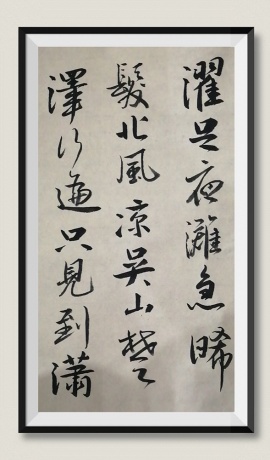 濯足夜灘急晞
髮北風涼吳山楚
澤行遍只見到瀟